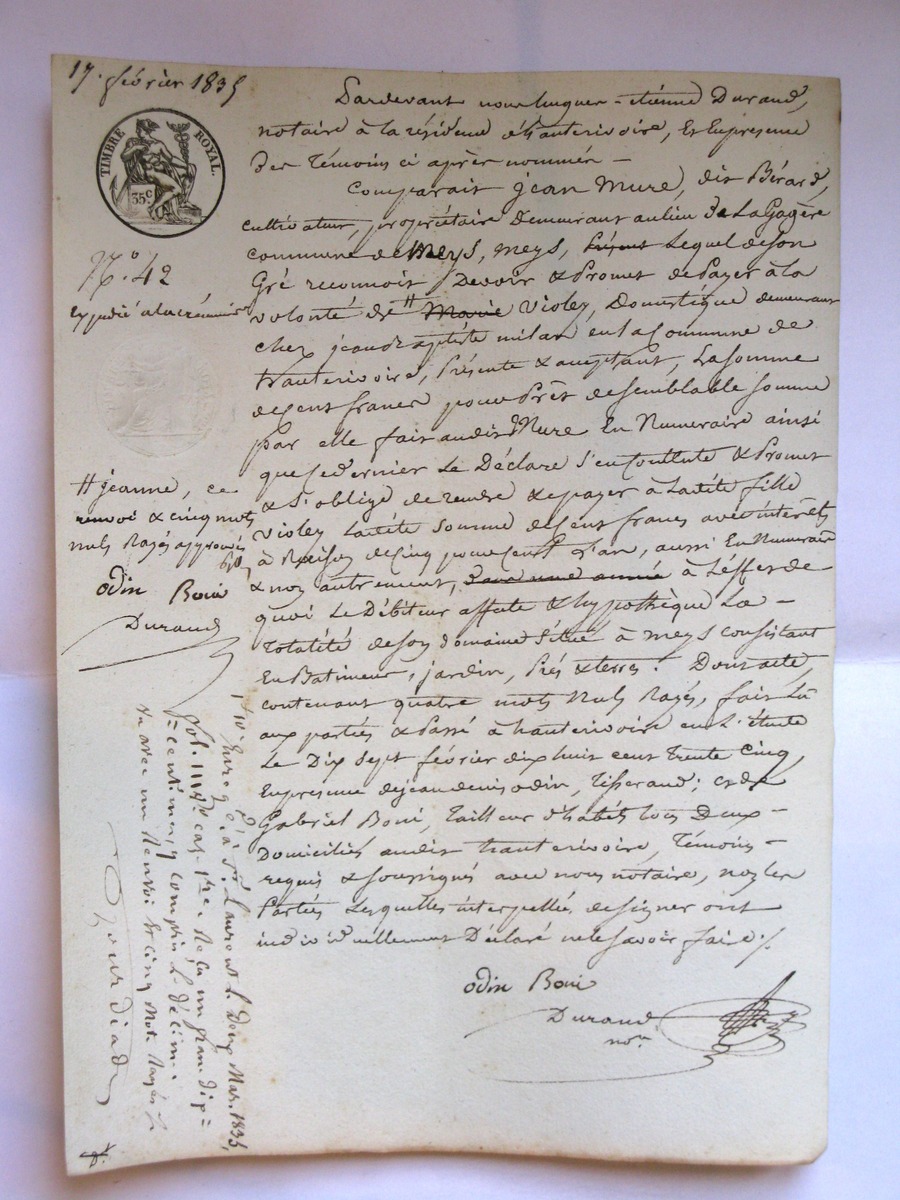 17. février 1835
TIMBRE ROYAL.
35c
N.o 42
Expédié à la créancière
Pardevant nous hugues-étienne Durand,
notaire à la résidence d'hauterivoire, Et En presence
Des témoins ci après nommés -
Comparait jean Mure, dit Bérard,
cultivateur, propriétaire Demeurant au lieu De La Gagère
commune de Meys, meys, Lequel de son
Gré reconnoit Devoir & Promet de Payer à la
volonté de # Marie Violey, Domestique demeurant
chez jean Baptiste milan en la Commune de
hauterivoire, Présente & acceptant, La somme
de cent francs pour Prêt de semblable somme
par elle fait audit Mure En Numeraire ainsi
que ce dernier Le Déclare S'en Contente & Promet
& S'oblige de rendre & epayer à Ladite fille
Violey Ladite Somme de cent francs avec intérêts
à Raison de Cinq pour Cent L'an, aussi En Numeraire
& non autrement, dans une année à L'effet de
quoi Le Débiteur affecte & hypothèque La -
Totalité de son domaine Situé à meys consistant
En Batiment, jardin, Prés & terres. Dont acte,
contenant quatre mots Nuls Rayés, fait Lu
aux parties & Passé à hauterivoire en L'étude
Le Dix Sept février dix huit cent trente Cinq,
En presence de jean denis odin, Tisserand; et de
Gabriel Boni, Tailleur d'habits tous Deux -
Domiciliés audit hauterivoire, Témoins -
requis & soussignés avec nous notaire, non les
Parties Lesquelles interpellés de signer ont
individuellement Déclaré ne le savoir faire ./.
odin Boni
Durand
nore
# jeanne, ce
renvoi & cinq mots
nuls Rayés approuvés
odin Boni
Durand
Enregé à St Laurent L. Douze Mars 1835,
Vol. case 1re Reçu un franc dix
centimes, y compris Le Décime.
avec un Renvoi Et cinq Mots Rayés